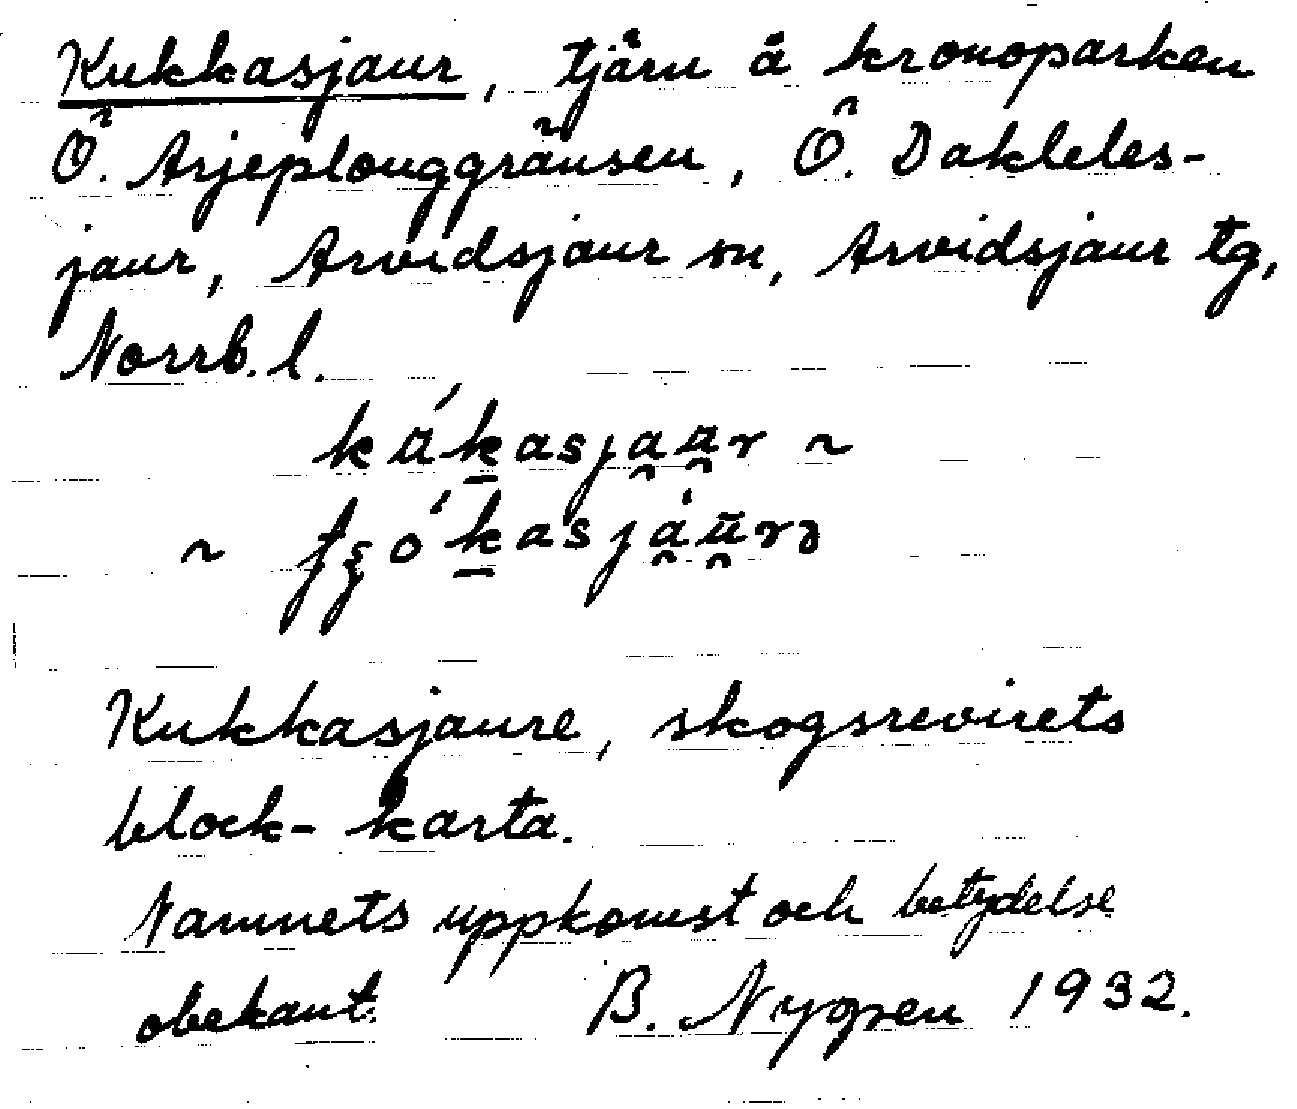 Kukkasjaur, tjärn å kronoparken
Ö. Arjeplouggränsen, Ö. Dakleles-
jaur, Arvidsjaur sn, Arvidsjaur tg,
Norrb. l.
Kukkasjaure, skogsrevirets
block-karta.
Namnets uppkomst och betydelse
obekant. B. Nygren 1932.